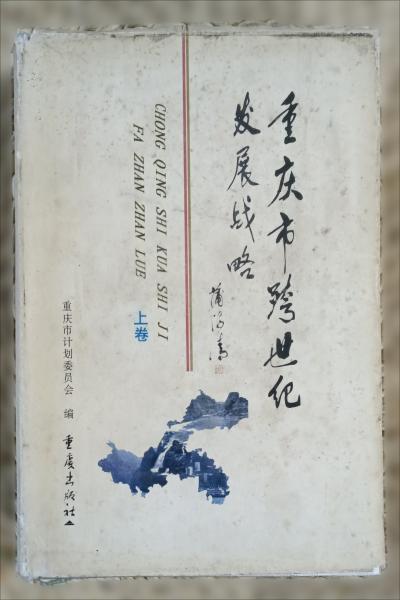 重庆市跨世纪
发展战略
蒲海清
CHONG QING SHI KUA SHI JI
FA ZHAN ZHAN LUE
上卷
重庆市计划委员会 编
重庆出版社